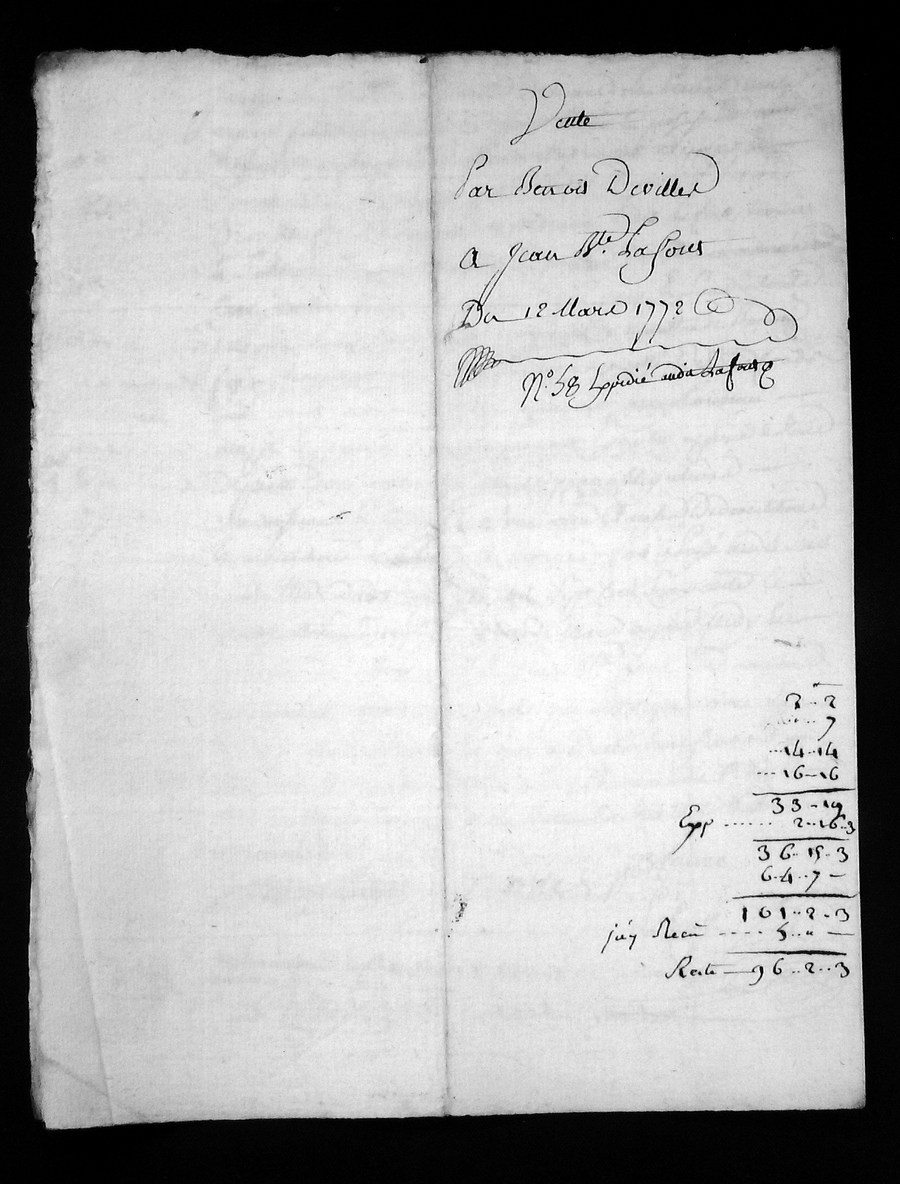 Vente
Par Benois Deviller
a Jean Bte. Lafont
Du 12 Mars 1772
No. 58 Expedié audit Lafont
2..2
..7
..14..14
...16..16
33..19
Exp ...... 2..16..3
36..15..3
64..7 —
101..2..3
j'ay Recu ..... 5..„ —
Reste — 96..2..3